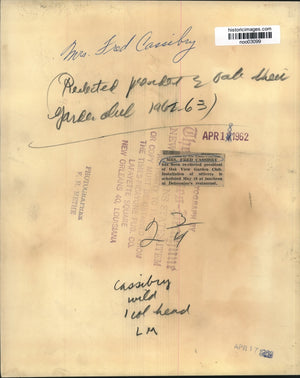 historicimages.com
noo03099
Mrs. Fred Cassibry
(Reelected president of Oak View
Garden Club 1962-63)
APR 18 1962
MRS. FRED CASSIBRY
has been reelected president
of Oak View Garden Club.
Installation of officers is
scheduled May 18 at luncheon
at Delmonico's restaurant.
LAFAYETTE SQUARE
NEW ORLEANS 40, LOUISIANA
PHOTOGRAPHER
2 3/4
Cassibry
wild
1 col head
LM
APR 17 1962